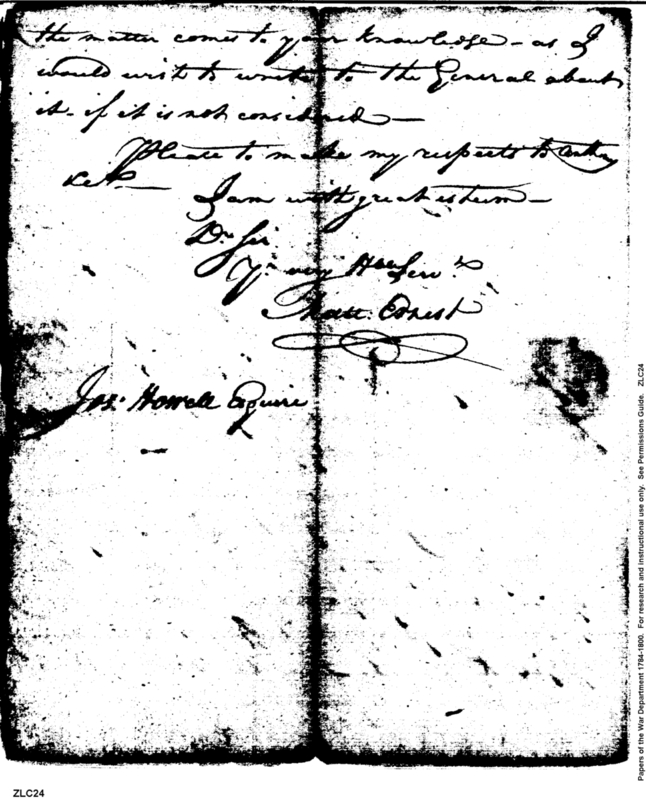 the matter comes to your knowledge – as I
would wish to write to the General about
it – if it is not considered —
Please to make my respects to
I am with great esteem –
Dr Sir
Yr very Hbe Servt
Matt. Ernest
Jos. Howell Esquire
Papers of the War Department 1784-1800. For research and instructional use only. See Permissions Guide. ZLC24
ZLC24